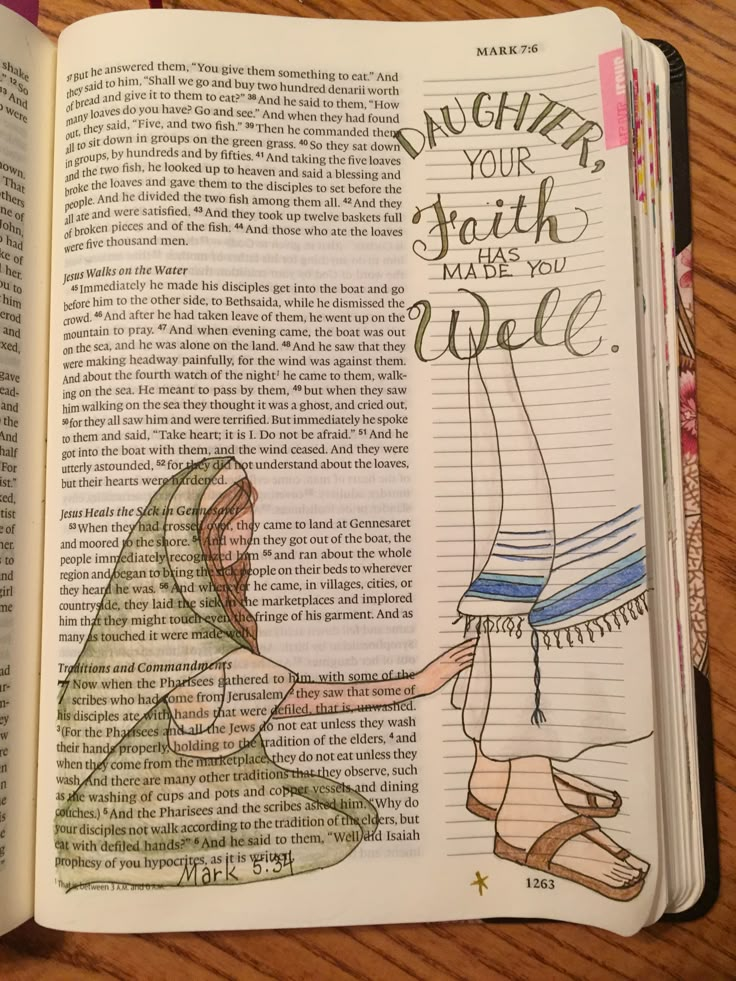 MARK 7:6
37 But he answered them, "You give them something to eat." And
they said to him, "Shall we go and buy two hundred denarii worth
of bread and give it to them to eat?" 38 And he said to them, "How
many loaves do you have? Go and see." And when they had found
out, they said, "Five, and two fish." 39 Then he commanded them
all to sit down in groups on the green grass. 40 So they sat down
in groups, by hundreds and by fifties. 41 And taking the five loaves
and the two fish, he looked up to heaven and said a blessing and
broke the loaves and gave them to the disciples to set before the
people. And he divided the two fish among them all. 42 And they
all ate and were satisfied. 43 And they took up twelve baskets full
of broken pieces and of the fish. 44 And those who ate the loaves
were five thousand men.
Jesus Walks on the Water
45 Immediately he made his disciples get into the boat and go
before him to the other side, to Bethsaida, while he dismissed the
crowd. 46 And after he had taken leave of them, he went up on the
mountain to pray. 47 And when evening came, the boat was out
on the sea, and he was alone on the land. 48 And he saw that they
were making headway painfully, for the wind was against them.
And about the fourth watch of the night1 he came to them, walk-
ing on the sea. He meant to pass by them, 49 but when they saw
him walking on the sea they thought it was a ghost, and cried out,
50 for they all saw him and were terrified. But immediately he spoke
to them and said, "Take heart; it is I. Do not be afraid." 51 And he
got into the boat with them, and the wind ceased. And they were
utterly astounded, 52 for they did not understand about the loaves,
but their hearts were hardened.
Jesus Heals the Sick in Gennesaret
53 When they had crossed over, they came to land at Gennesaret
and moored to the shore. 54 And when they got out of the boat, the
people immediately recognized him 55 and ran about the whole
region and began to bring the sick people on their beds to wherever
they heard he was. 56 And wherever he came, in villages, cities, or
countryside, they laid the sick in the marketplaces and implored
him that they might touch even the fringe of his garment. And as
many as touched it were made well.
Traditions and Commandments
7 Now when the Pharisees gathered to him, with some of the
scribes who had come from Jerusalem, 2 they saw that some of
his disciples ate with hands that were defiled, that is, unwashed.
3 (For the Pharisees and all the Jews do not eat unless they wash
their hands properly, holding to the tradition of the elders, 4 and
when they come from the marketplace, they do not eat unless they
wash. And there are many other traditions that they observe, such
as the washing of cups and pots and copper vessels and dining
couches.) 5 And the Pharisees and the scribes asked him, "Why do
your disciples not walk according to the tradition of the elders, but
eat with defiled hands?" 6 And he said to them, "Well did Isaiah
prophesy of you hypocrites, as it is written,
Mark 5:34
1 That is, between 3 A.M. and 6 A.M.
1263
DAUGHTER,
YOUR
Faith
HAS
MADE YOU
Well.